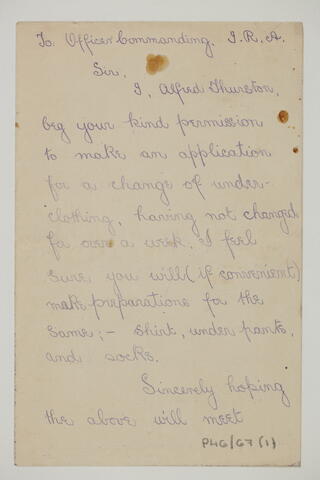 To. Officer Commanding. I. R. A.
Sir.
I, Alfred Thurston,
beg your kind permission
to make an application
for a change of under-
clothing, having not changed
for over a week. I feel
sure you will (if convenient)
make preparations for the
same; - shirt, under pants,
and socks.
Sincerely hoping
the above will meet
P46/67(1)